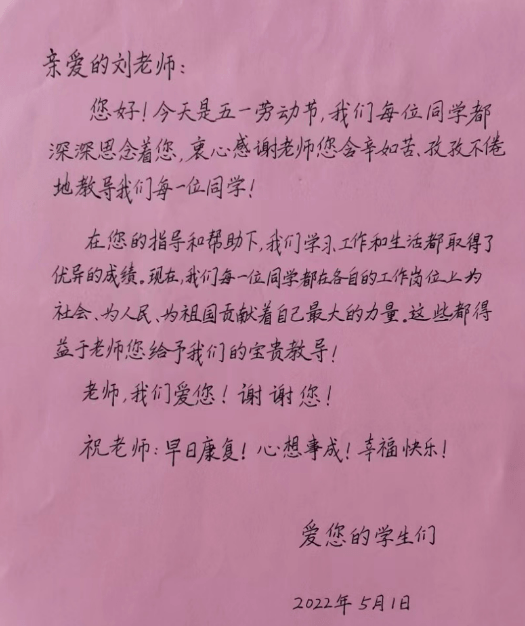 亲爱的刘老师:
您好!今天是五一劳动节,我们每位同学都
深深思念着您,衷心感谢老师您含辛如苦、孜孜不倦
地教导我们每一位同学!
在您的指导和帮助下,我们学习、工作和生活都取得了
优异的成绩。现在,我们每一位同学都在各自的工作岗位上为
社会、为人民、为祖国贡献着自己最大的力量。这些都得
益于老师您给予我们的宝贵教导!
老师,我们爱您!谢谢您!
祝老师:早日康复!心想事成!幸福快乐!
爱您的学生们
2022年5月1日